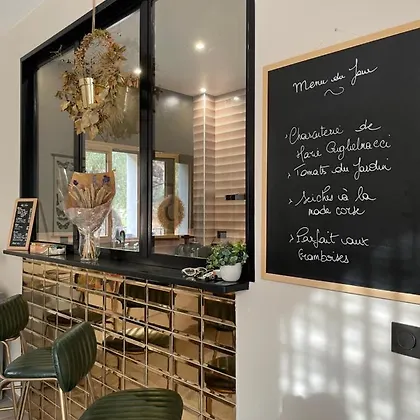 Menu du Jour
> Charcuterie de
Marc Guglielmacci
> Tomates du Jardin
> Seiches à la
mode corse
> Parfait aux
framboises